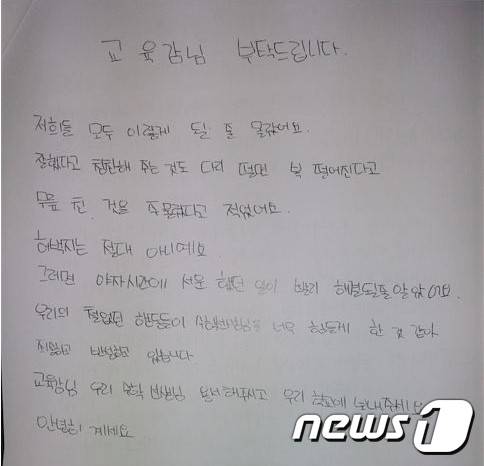 교육감님 부탁드립니다.
저희들 모두 이렇게 될 줄 몰랐어요.
잘했다고 칭찬해 주는 것도 다리 떨면 복 떨어진다고
무릎 친 것을 주물렀다고 적었어요.
허벅지는 절대 아니에요
그러면 야자시간에 서운 했던 일이 빨리 해결될줄 알았어요.
우리의 철없던 행동들이 수학선생님을 너무 힘들게 한 것 같아
죄송하고 반성하고 있습니다
교육감님 우리 수학 선생님 용서해주시고 우리 학교에 보내주세요
안녕히 계세요
news1